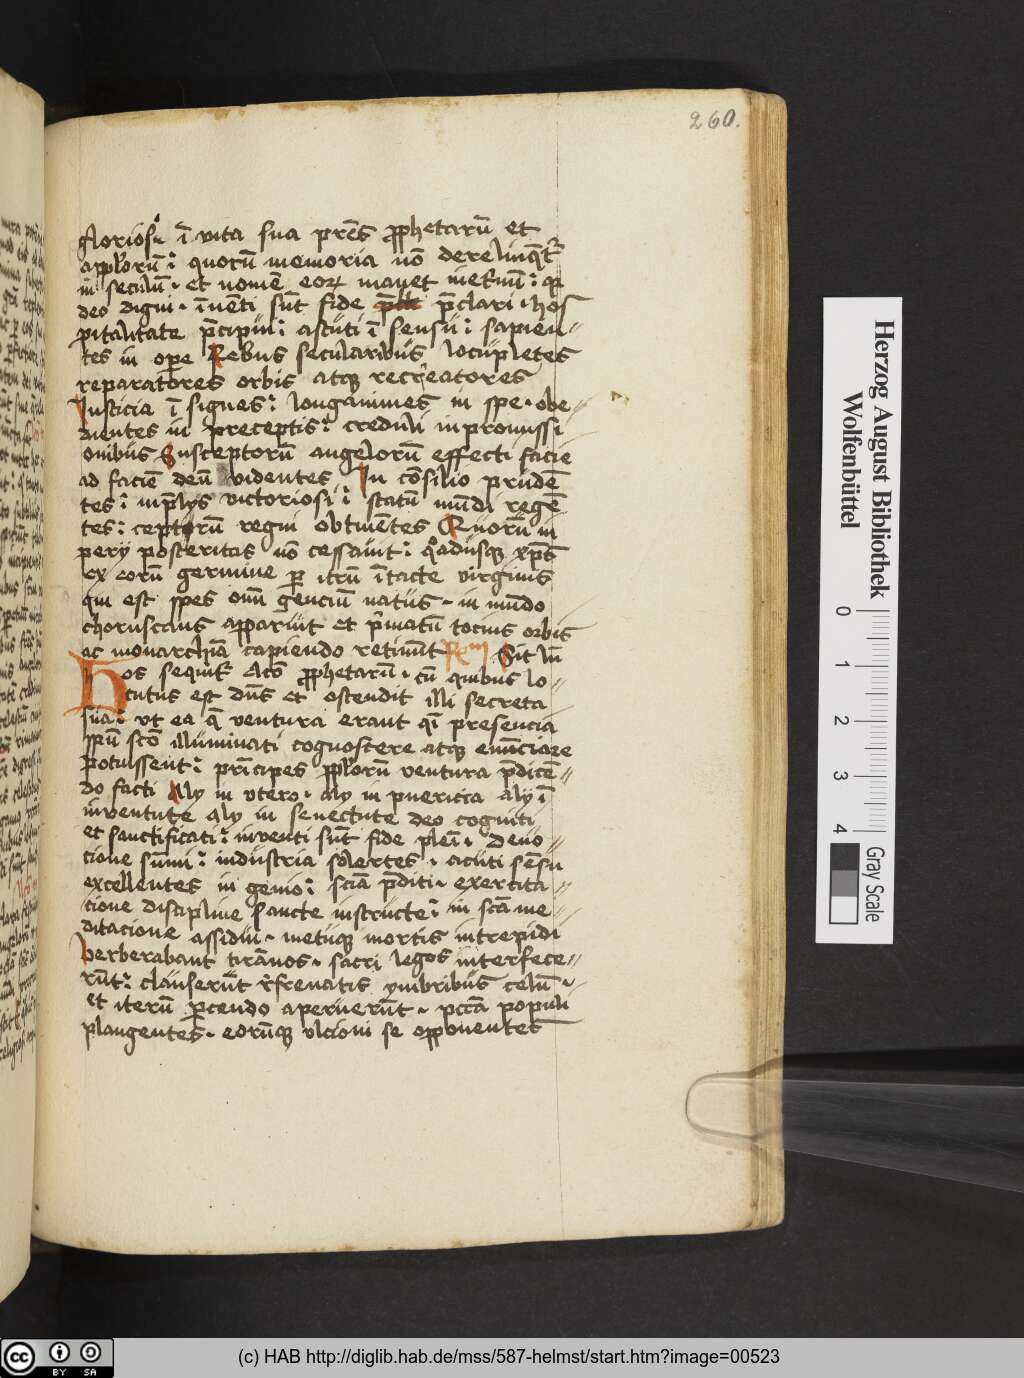 260.
glorios⁹ ī vita sua pr̄es ꝓphetarū et
applorū : quorū memoria nō derelinq̄t᷑
in seculū · et nomē eorꝝ manet inet̄nū : qꝛ
deo digni · īuēti sūt fide p̄clari · hos
pitalitate p̄cipui : astuti ī sensu : sapien
tes in oꝑe Rebus secularibus locupletes
reparatores orbis atqꝫ recreatores
Iusticia ī signes : longanimes in spe · obe
dientes in preceptis : creduli in promissi
onibus Susceptorū angelorū effecti facie
ad faciē deū videntes In cōsilio prudē
tes : victoriosi : statū mūdi regē
tes : ceptorū regni obtinētes Quorū in
posteritas nō cessauit : qͦadusqꝫ xp̄s
ex eorū germine ꝑ itrū ītacte virginis
qui est spes om̄ genciū natus · in mūdo
choruscans apparuit et p̄matū tocius orbis
ac monarchiā capiendo retinuit Sit
Hos sequit᷑ ꝓphetarū · cū quibus lo
cutus est dn̄s et ostendit illi secreta
sua : vt ea q̄ ventura erant q̄i presencia
spū sctō illuminati cognoscere atqꝫ enūciare
potuissent : prīcipes pplorū ventura p̄dicē
do facti Aly in vtero · aly in puericia aly ī
iuuentute aly in senectute deo cogniti
et sanctificati : inuenti sūt fide plēi · deuo
cione sūmi : industria solertes · acuti sēsu
excellentes in genio : sciā p̄diti · exercita
cione discipline sancte instructe : in scā me
ditacione assidui · metuqꝫ mortis intrepidi
verberabant tirānos · sacri legos interfece
rūt : clauserūt r̄frenatis ymbribus celū ·
et iterū ꝑcendo aperuerūt · pctā populi
plangentes · eorūqꝫ vlcioni se opponentes
Herzog August Bibliothek
Wolfenbüttel
0 1 2 3 4
Gray Scale
cc BY SA
(c) HAB http://diglib.hab.de/mss/587-helmst/start.htm?image=00523